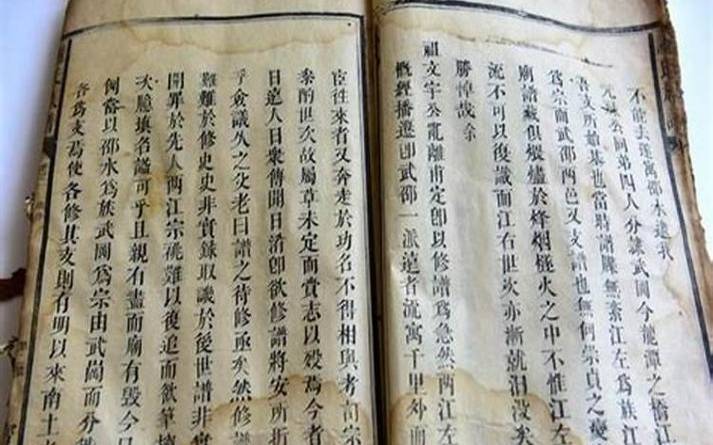 不能去蓬寓邵水逮我
元頫公同弟四人分隷武岡今龍潭之橋江
吾支所始基也當時譜牒無紊江左爲族江
爲宗而武邵兩邑又支譜也無何崇貞之變
廟譜藏俱燬燼於烽烟極火之中不惟江左
流不可以復識而江右世次亦漸就汩没矣
勝悼哉余
祖文宇公亂離甫定卽以修譜爲急然兩江左
概經播遷卽武邵一派遠者流寓千里外
宦徃來者又奔走於功名不得相與考訂宗
泰酌世次故屬草未定而賫志以殁焉今者
日遠人日衆傳聞日淆卽欲修譜將安所折
乎僉議久之父老曰譜之待修亟矣然修
難難於修史史非實錄取譏於後世譜非實
開罪於先人兩江宗祧難以復追而欲筆
次臆填名謚可乎且親有盡而廟有毁今
何啻以邵水爲族武岡爲宗由武岡而分
各爲支焉使各修其支則有明以來南土